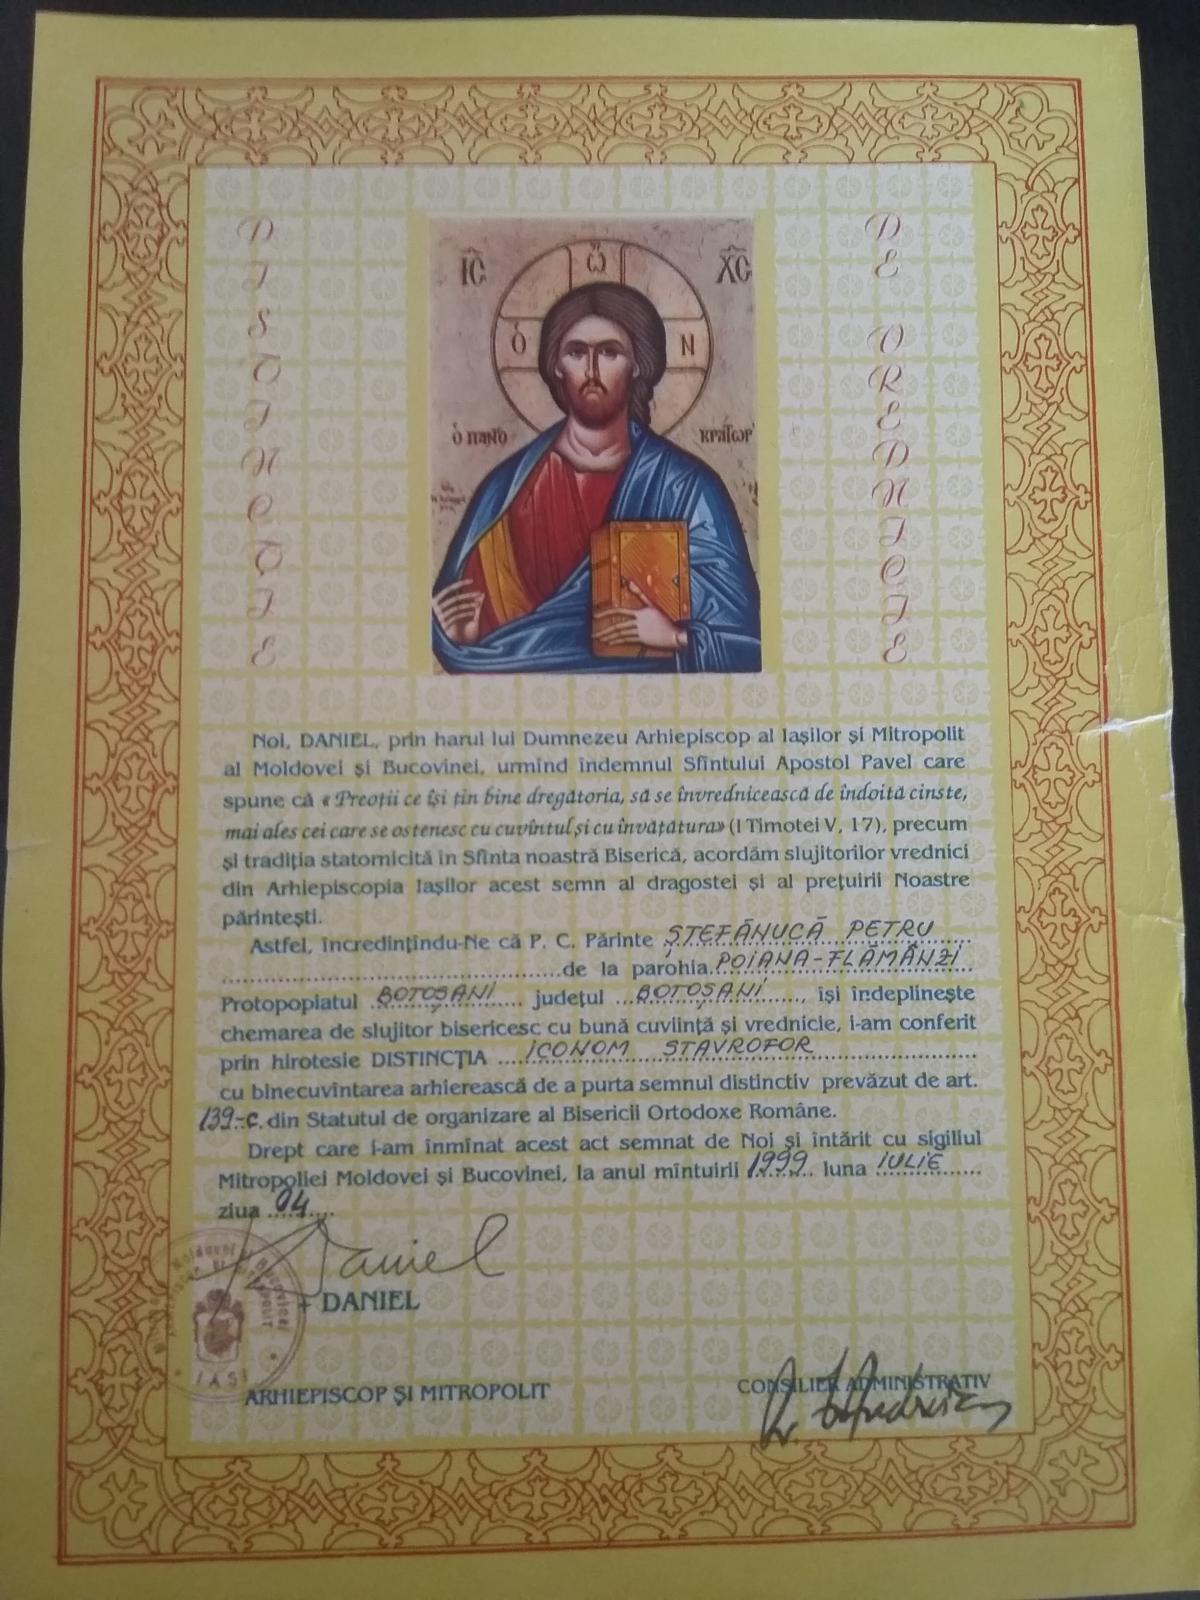 DISTINCȚIE
DE VREDNICIE
IC XC
Ὁ Ὤ Ν
ὁ ΠΑΝΟ ΚΡΑΤωΡ
Noi, DANIEL, prin harul lui Dumnezeu Arhiepiscop al Iașilor și Mitropolit
al Moldovei și Bucovinei, urmînd îndemnul Sfîntului Apostol Pavel care
spune că «Preoții ce își țin bine dregătoria, să se învrednicească de îndoită cinste,
mai ales cei care se ostenesc cu cuvîntul și cu învățătura» (I Timotei V, 17), precum
și tradiția statornicită în Sfînta noastră Biserică, acordăm slujitorilor vrednici
din Arhiepiscopia Iașilor acest semn al dragostei și al prețuirii Noastre
părintești.
Astfel, încredințîndu-Ne că P. C. Părinte ȘTEFĂNUCĂ PETRU
de la parohia POIANA-FLĂMÂNZI
Protopopiatul BOTOȘANI județul BOTOȘANI, își îndeplinește
chemarea de slujitor bisericesc cu bună cuviință și vrednicie, i-am conferit
prin hirotesie DISTINCȚIA ICONOM STAVROFOR
cu binecuvîntarea arhierească de a purta semnul distinctiv prevăzut de art.
139-c. din Statutul de organizare al Bisericii Ortodoxe Române.
Drept care i-am înmînat acest act semnat de Noi și întărit cu sigiliul
Mitropoliei Moldovei și Bucovinei, la anul mîntuirii 1999 luna IULIE
ziua 04
Daniel
+ DANIEL
IAȘI
ARHIEPISCOP ȘI MITROPOLIT
CONSILIER ADMINISTRATIV